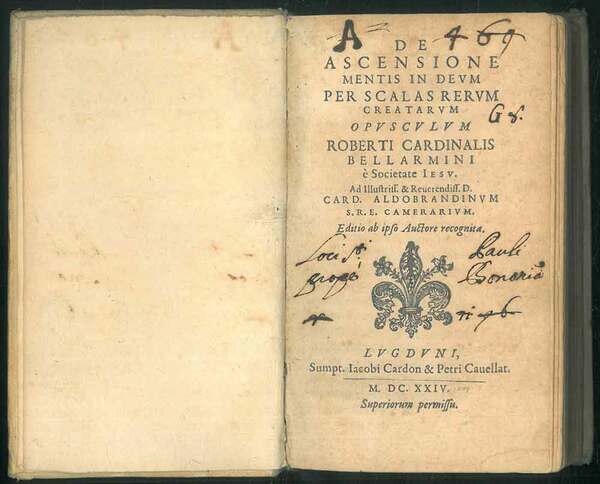 A
469
DE
ASCENSIONE
MENTIS IN DEVM
PER SCALAS RERVM
CREATARVM
G 8.
OPVSCVLVM
ROBERTI CARDINALIS
BELLARMINI
è Societate IESV.
Ad Illustriss. & Reuerendiss. D.
CARD. ALDOBRANDINVM
S.R.E. CAMERARIVM.
Editio ab ipso Auctore recognita.
Loci Sti
Pauli
Bononia
LVGDVNI,
Sumpt. Iacobi Cardon & Petri Cauellat.
M. DC. XXIV.
Superiorum permissu.